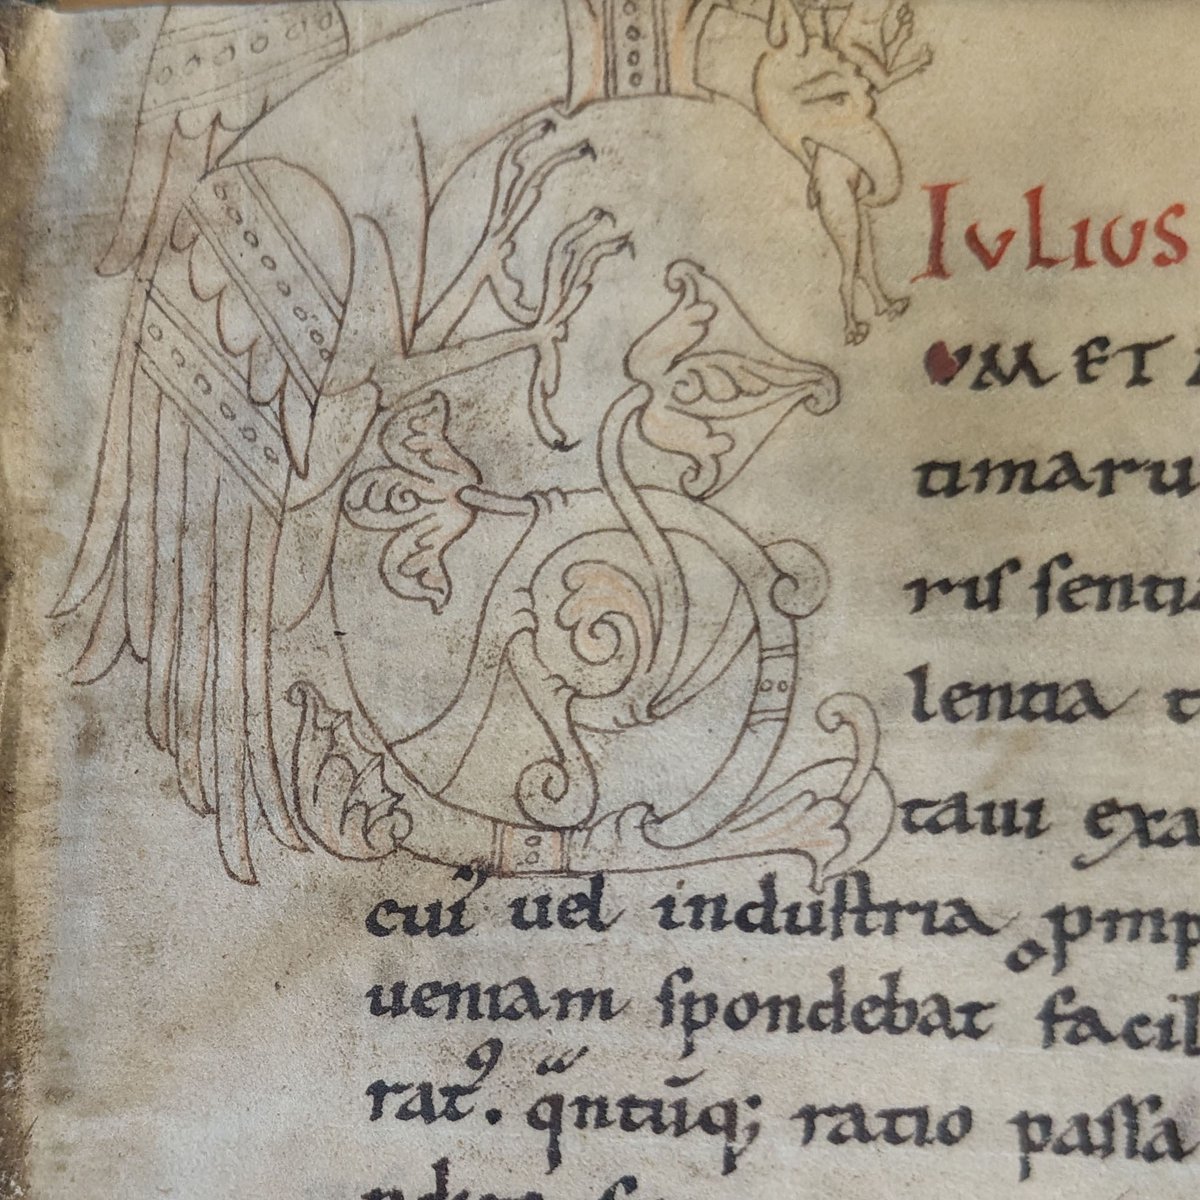 Iulius
um et
timaru
ris senti
lentia t
taui exa
cui uel industria
ueniam spondebat facil
rat⁹. qntūq; ratio passa